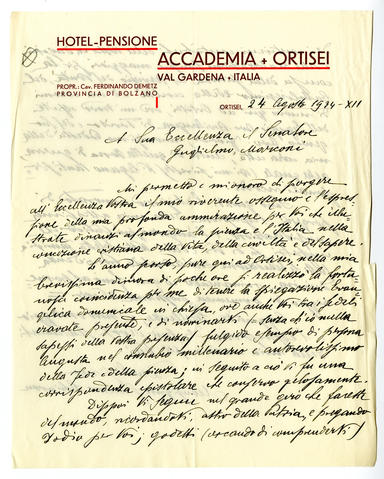 HOTEL-PENSIONE
ACCADEMIA + ORTISEI
VAL GARDENA + ITALIA
PROPR.: Cav. FERDINANDO DEMETZ
PROVINCIA DI BOLZANO
ORTISEI, 24 Agosto 1934-XII
A Sua Eccellenza il Senatore
Guglielmo Marconi
Mi permetto e mi onoro di porgere
all'Eccellenza Vostra il mio riverente ossequio e l'espres-
sione della mia profonda ammirazione per Voi che illu-
strate dinanzi al mondo la scienza e l'Italia nella
concezione cristiana della vita, della civiltà e del sapere.
L'anno scorso, pure qui ad Ortisei, nella mia
brevissima dimora di poche ore si realizzò la fortu-
nosa coincidenza per me di tenere la spiegazione Evan-
gelica domenicale in chiesa, ove anche Voi tra i fedeli
eravate presente, e di nominarvi (senza che io nulla
sapessi della Vostra presenza) fulgido esempio di persona
Augusta nel connubio millenario e autorevolissimo
della Fede e della scienza; in seguito a ciò vi fu una
corrispondenza epistolare che conservo gelosamente.
Dippoi Vi seguii nel grande giro che faceste
del mondo, ricordandovi, astro della Patria, e pregando
Iddio per Voi; godetti (cercando di comprendervi)